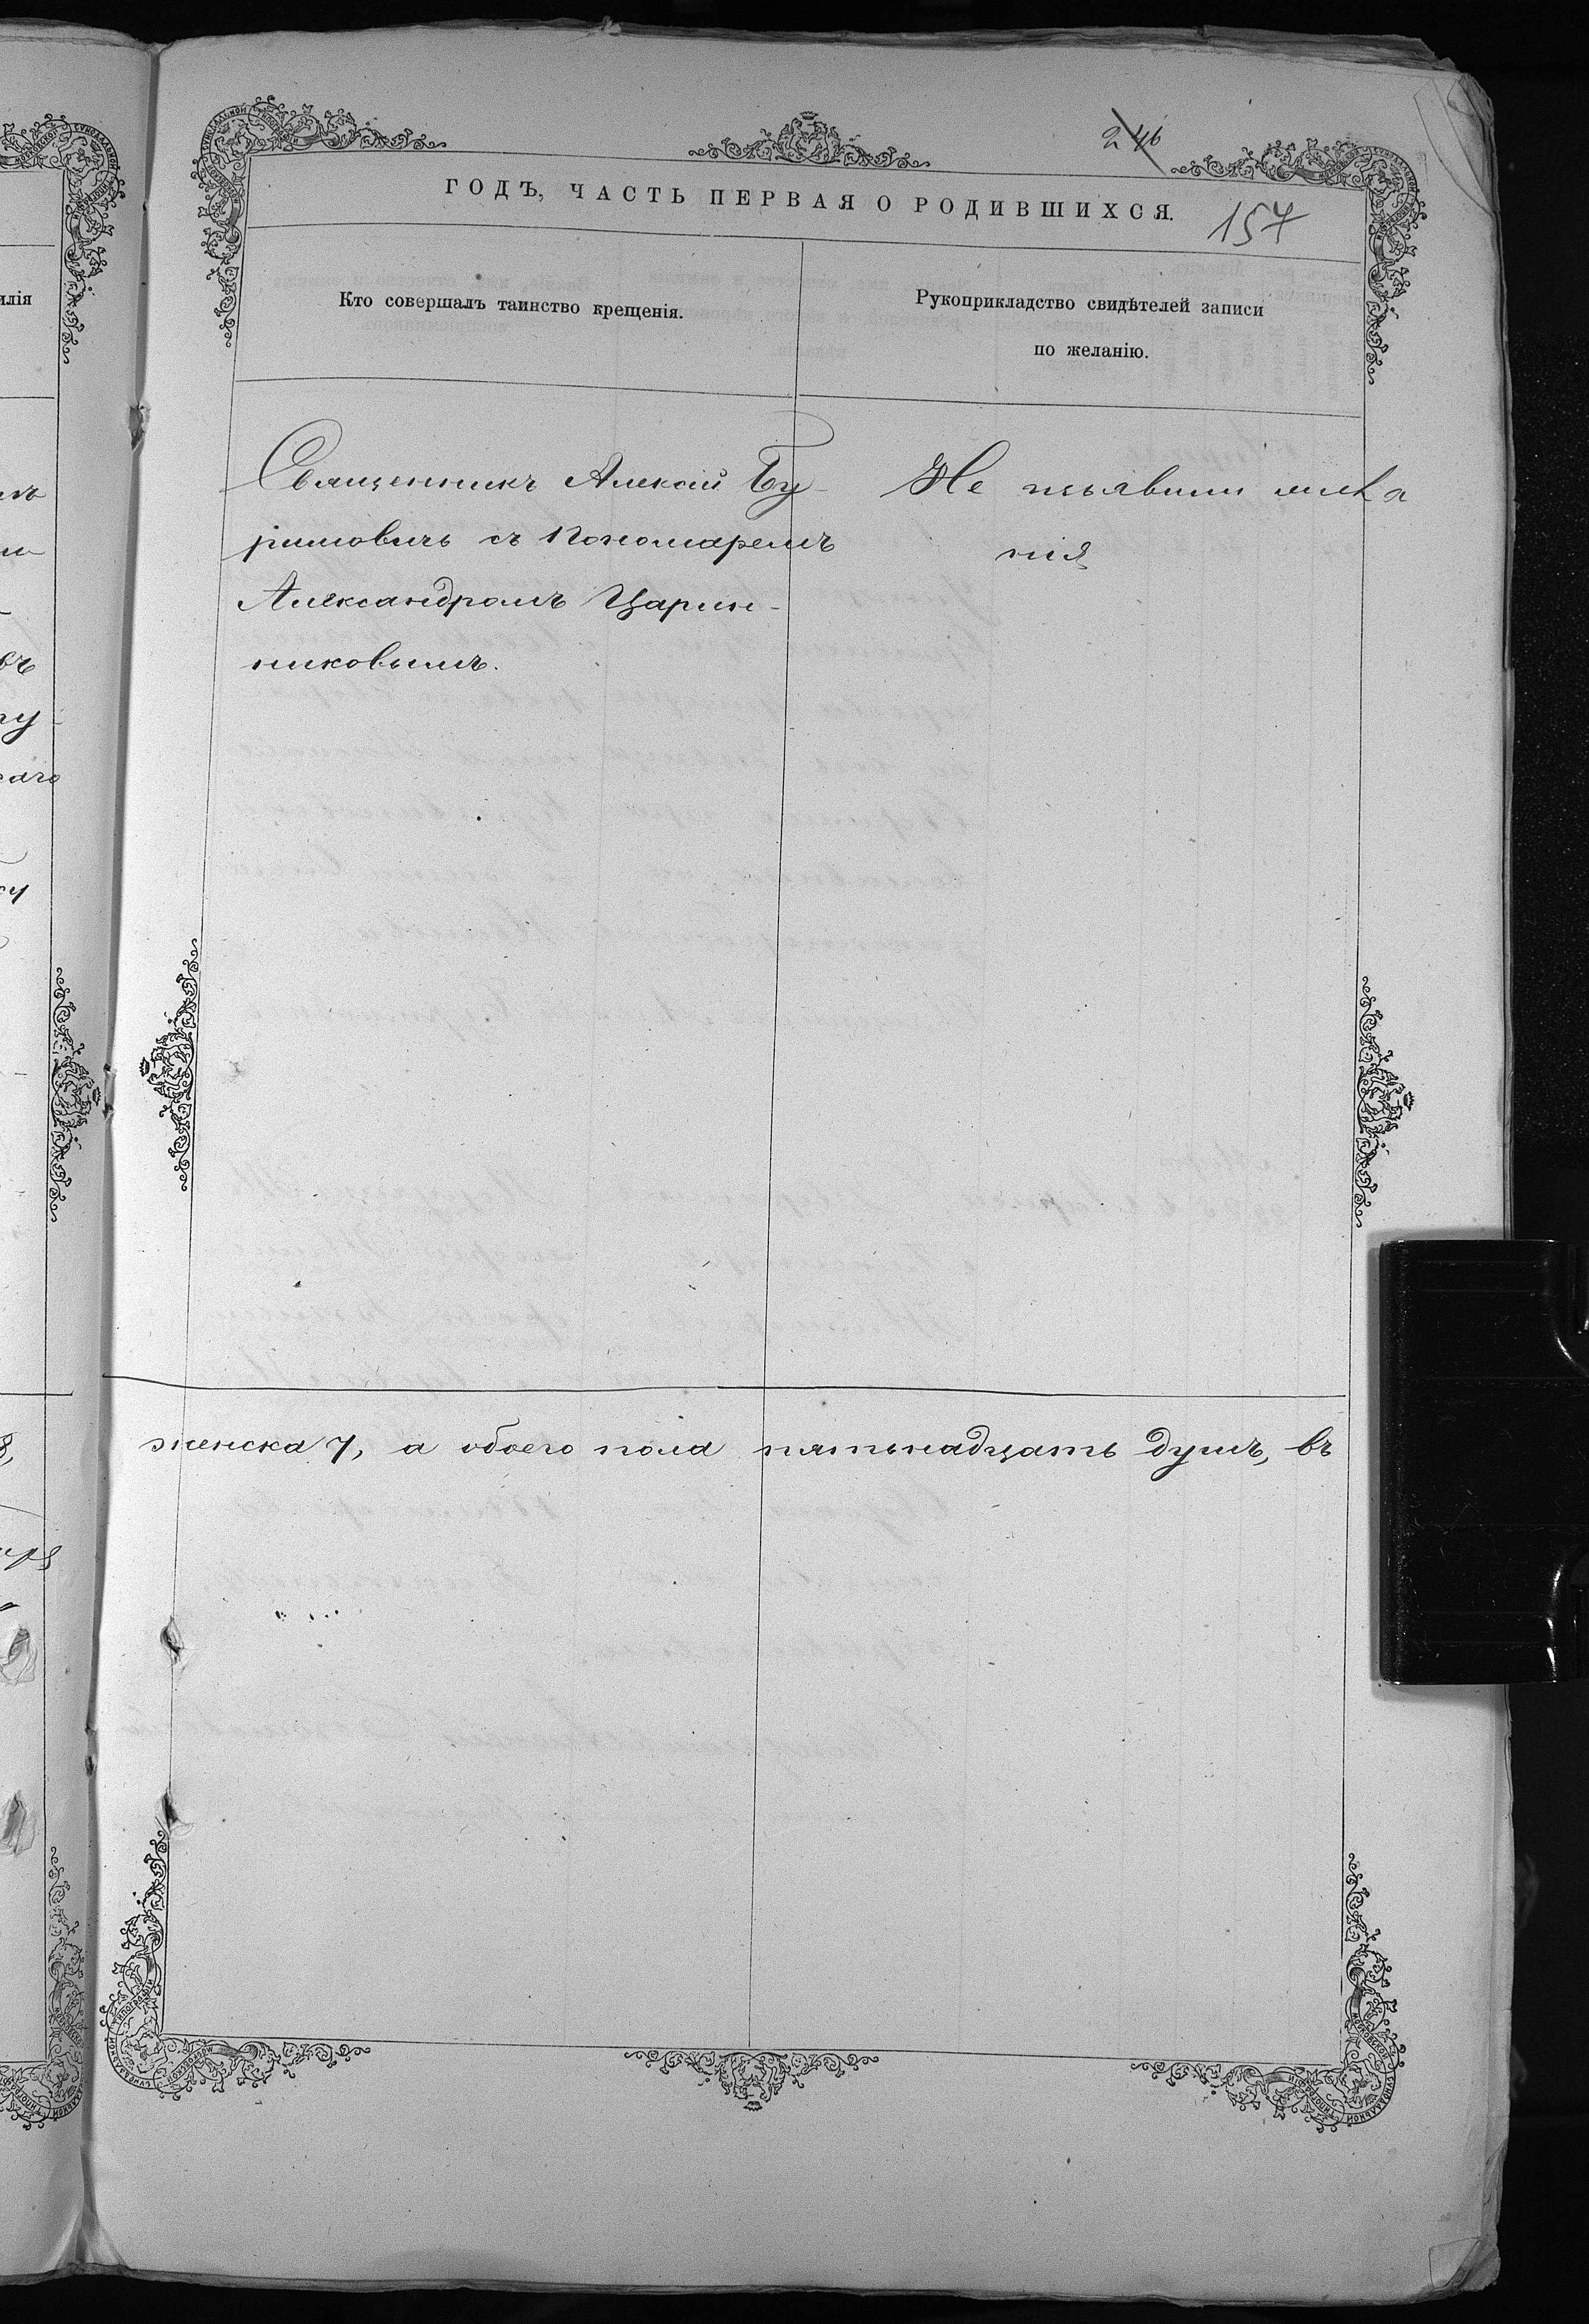 246
ГОДЪ, ЧАСТЬ ПЕРВАЯ О РОДИВШИХСЯ.
157
Кто совершалъ таинство крещенія.
Рукоприкладство свидѣтелей записи
по желанію.
Священникъ Алексій Бу-
римовичъ съ Пономаремъ
Александромъ Царин-
никовымъ.
Не изъявили жела
нія
женска 7, а обоего пола пятьнадцать душъ, въ
илія